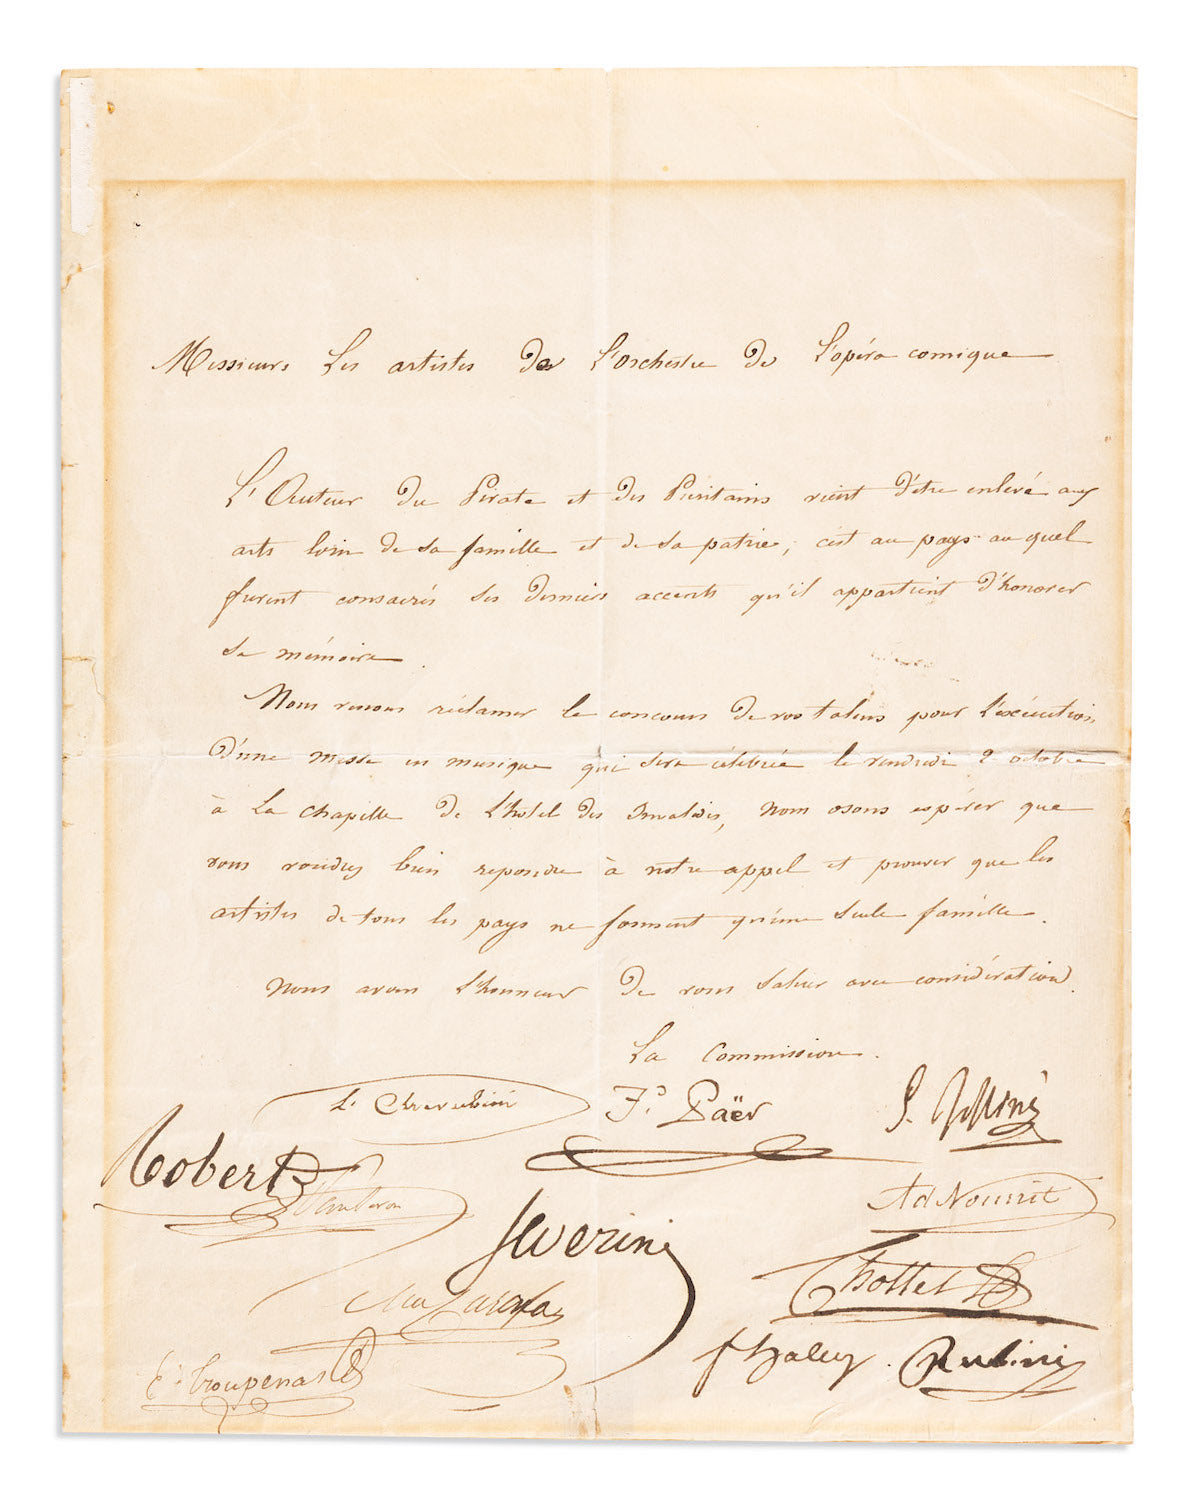 Messieurs Les artistes de L'orchestre de L'opéra comique
L'Auteur du Pirate et des Puritains vient d'être enlevé aux
arts loin de sa famille et de sa patrie, c'est au pays au quel
furent consacrés ses derniers accents qu'il appartient d'honorer
sa mémoire.
Nous venons réclamer le concours de vos talens pour L'exécution
D'une messe en musique qui sera célébrée le vendredi 2 octobre
à La chapelle de L'hôtel des invalides, Nous osons espérer que
vous voudrez bien repondre à notre appel et prouver que les
artistes de tous les pays ne forment qu'une seule famille.
Nous avons L'honneur de vous saluer avec considération.
La Commission.
L. Cherubini Fd. Paër G. Rossini
Robert Panseron Ad Nourrit
Severini Chollet
Carafa
F Halevy. Rubini
E. Troupenas